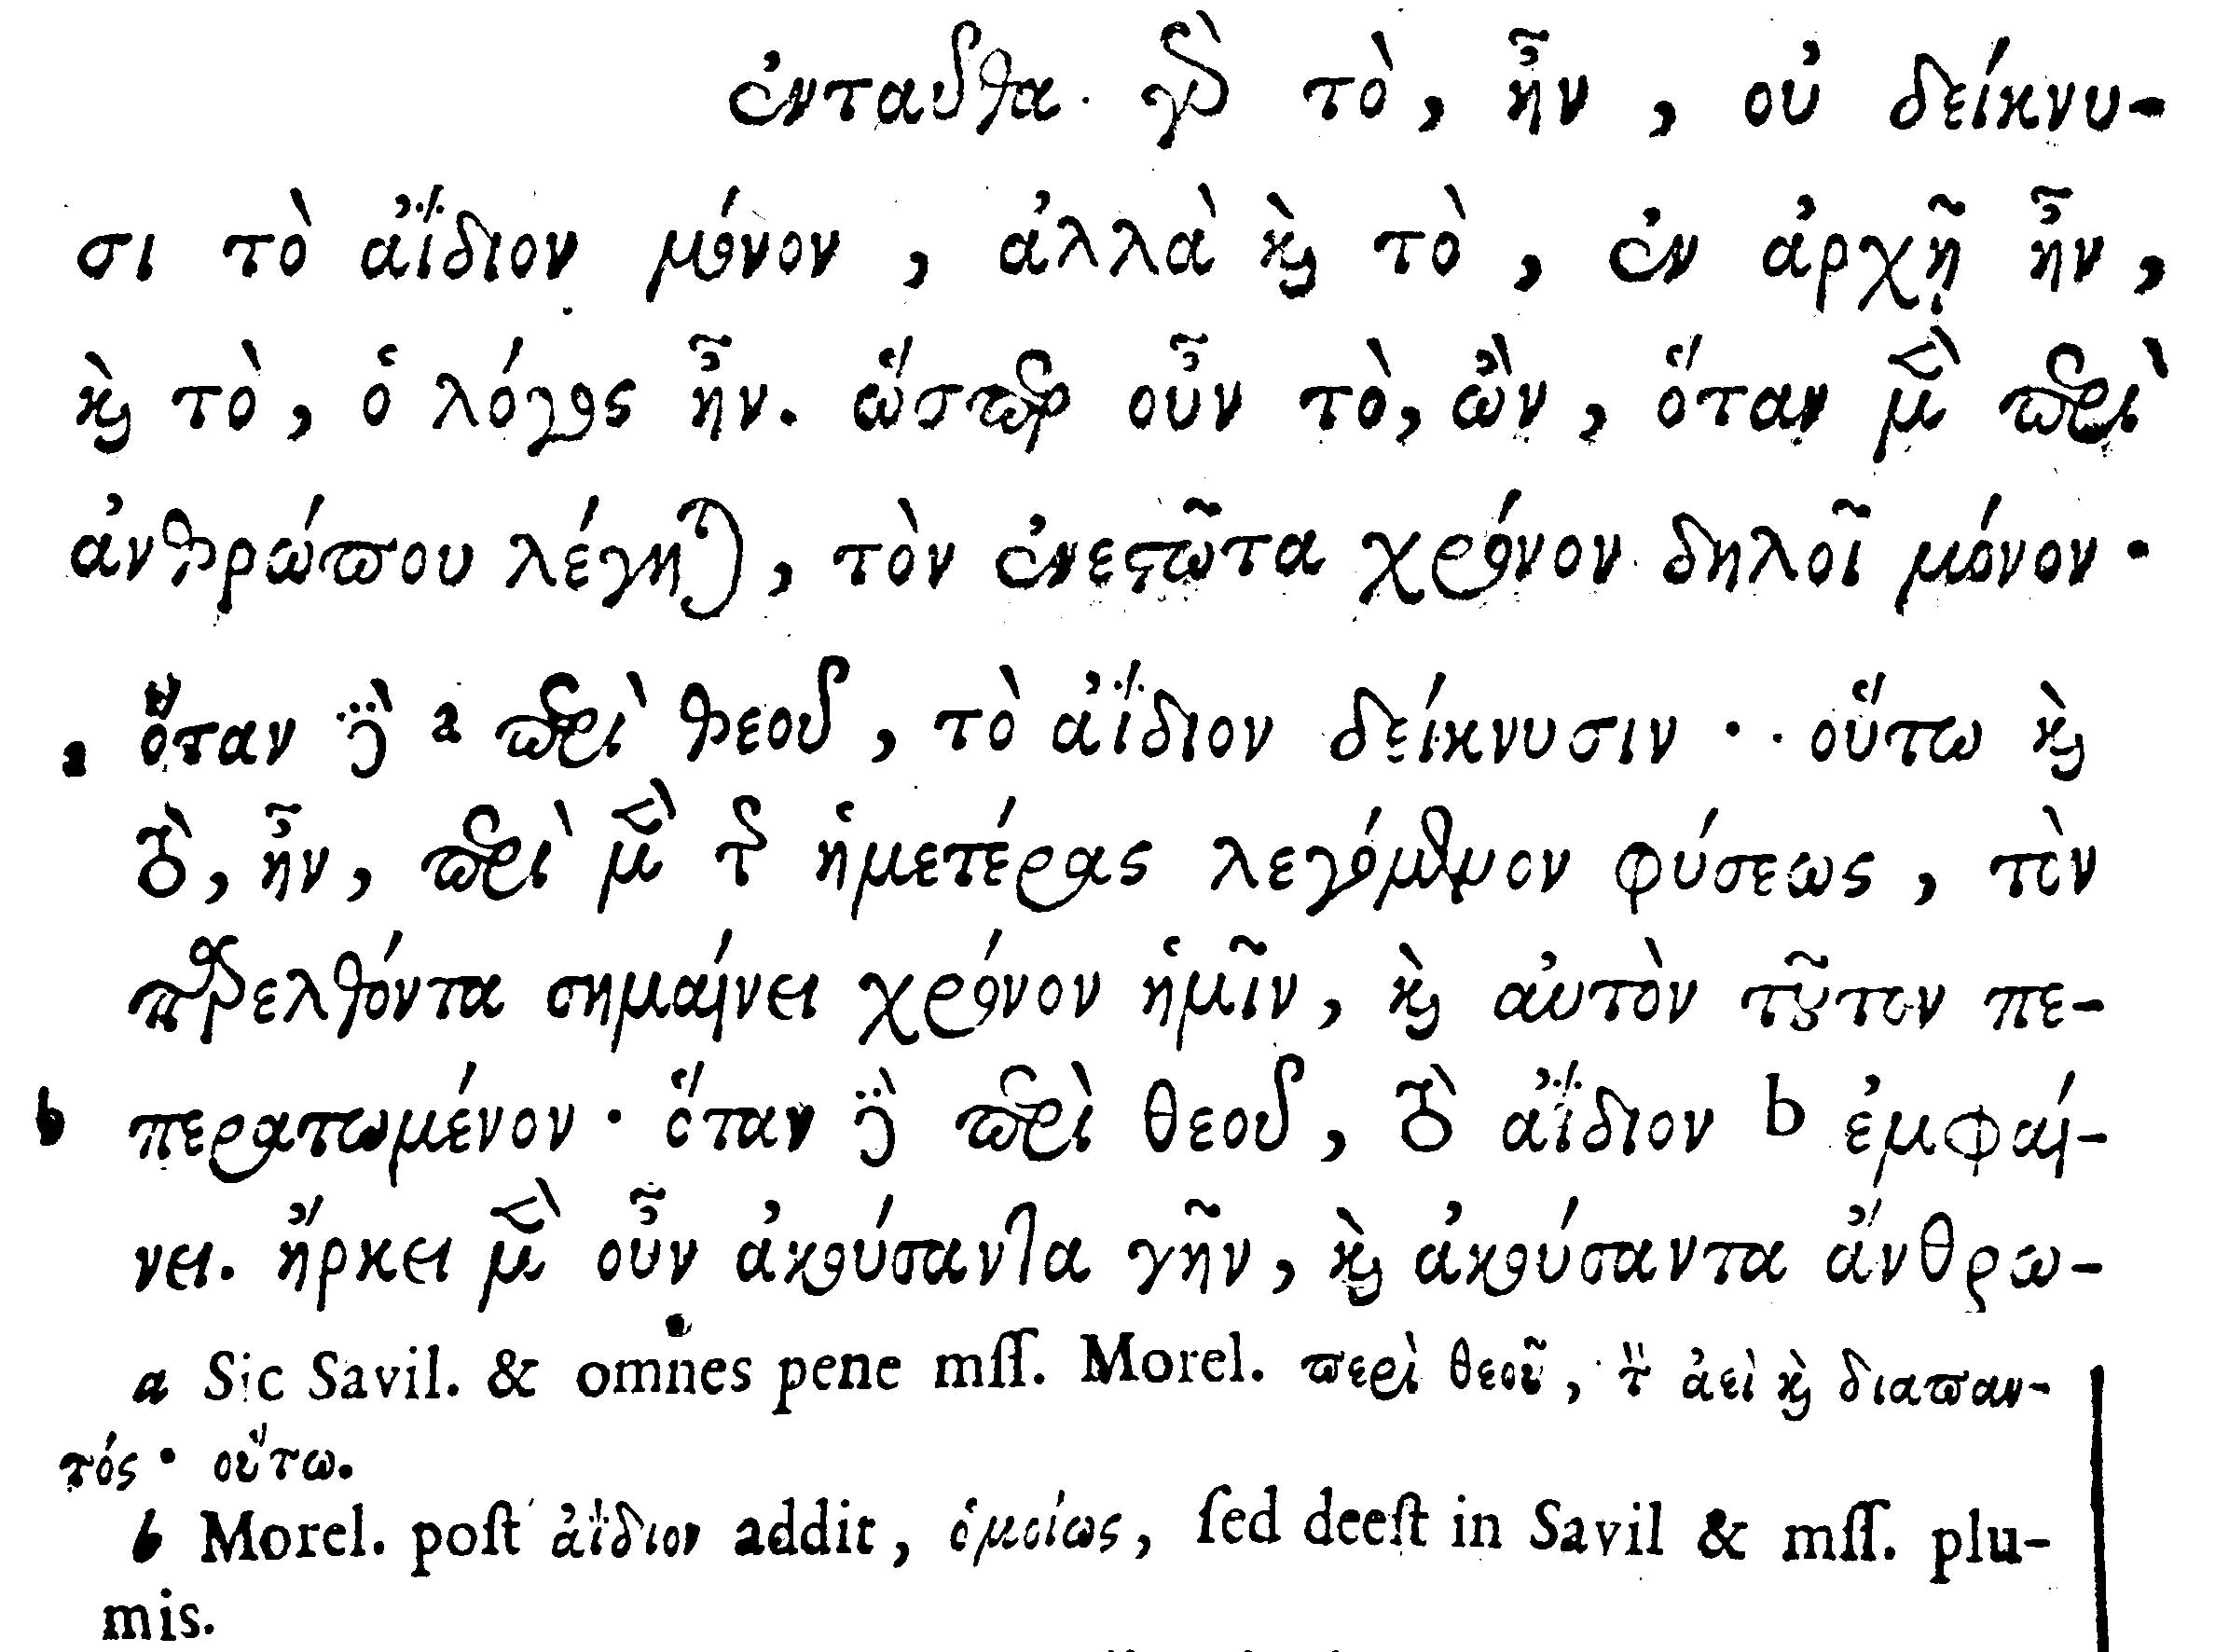 ἐνταῦθα γὰρ τὸ, ἦν, οὐ δείκνυ-
σι τὸ ἀΐδιον μόνον, ἀλλὰ καὶ τὸ, ἐν ἀρχῇ ἦν,
καὶ τὸ, ὁ λόγος ἦν. ὥσπερ οὖν τὸ, ὢν, ὅταν μὲν περὶ
ἀνθρώπου λέγηται, τὸν ἐνεστῶτα χρόνον δηλοῖ μόνον·
a ὅταν δὲ a περὶ θεοῦ, τὸ ἀΐδιον δείκνυσιν· οὕτω καὶ
τὸ, ἦν, περὶ μὲν τῆς ἡμετέρας λεγόμενον φύσεως, τὸν
παρελθόντα σημαίνει χρόνον ἡμῖν, καὶ αὐτὸν τοῦτον πε-
b περατωμένον· ὅταν δὲ περὶ θεοῦ, τὸ ἀΐδιον b ἐμφαί-
νει. ἤρκει μὲν οὖν ἀκούσαντα γῆν, καὶ ἀκούσαντα ἄνθρω-
a Sic Savil. & omnes pene mſſ. Morel. περὶ θεοῦ, τὸ ἀεὶ καὶ διαπαν-
τός· οὕτω.
b Morel. poſt ἀΐδιον addit, ὁμοίως, ſed deeſt in Savil & mſſ. plu-
mis.